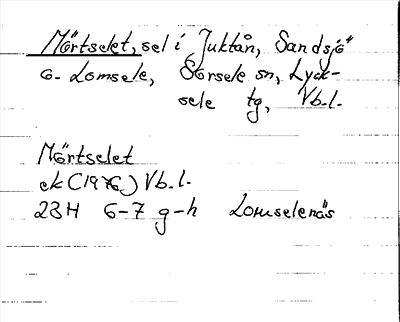 Mörtselet, sel i Juktån, Sandsjö
o. Lomsele, Storsele sn, Lyck-
sele tg, Vb.l.
Mörtselet
ek (1976) Vb.l.
23H 6-7 g-h Lomselenäs